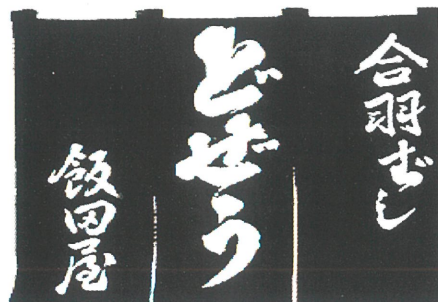 合羽ばし
どぜう
飯田屋